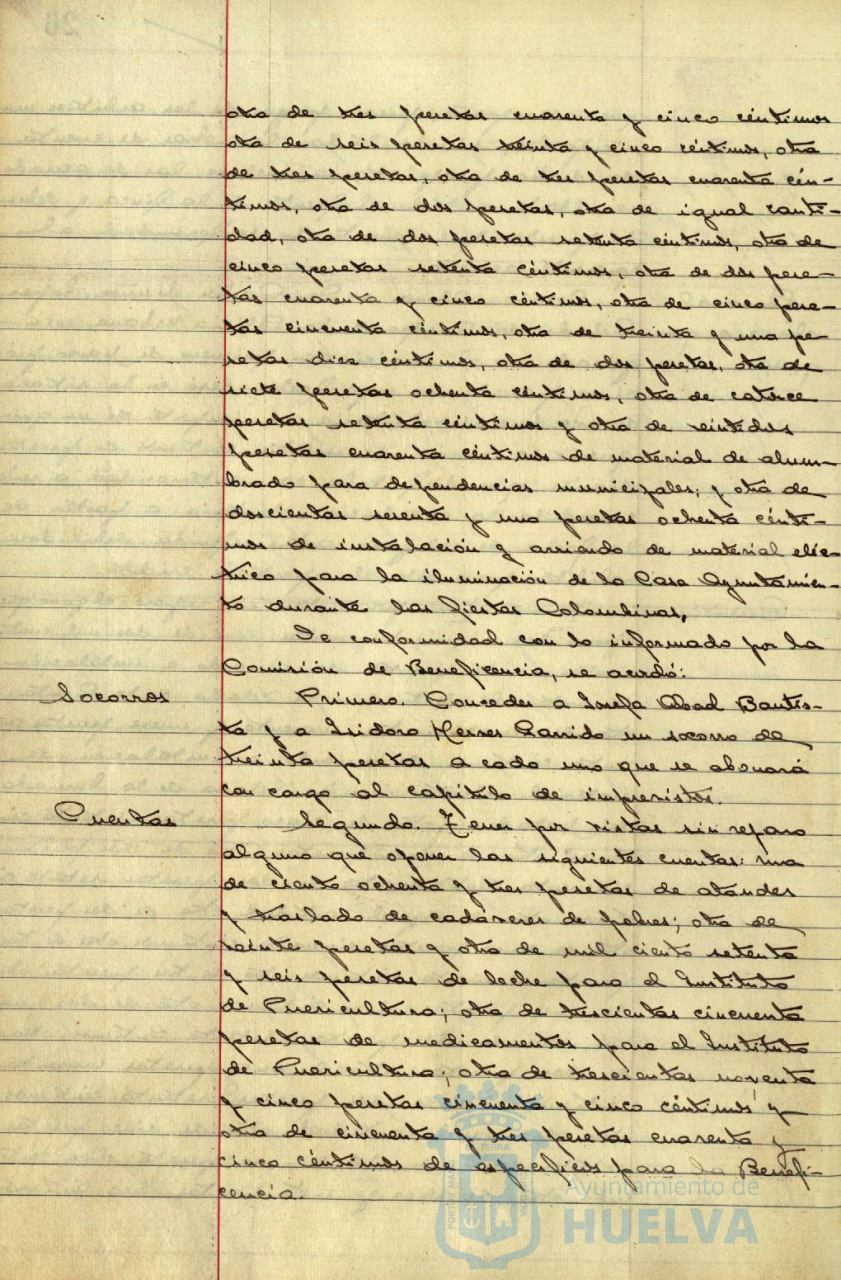 otra de tres pesetas cuarenta y cinco céntimos
otra de seis pesetas treinta y cinco céntimos, otra
de tres pesetas, otra de tres pesetas cuarenta cén-
timos, otra de dos pesetas, otra de igual canti-
dad, otra de dos pesetas setenta céntimos, otra de
cinco pesetas setenta céntimos, otra de dos pese-
tas cuarenta y cinco céntimos, otra de cinco pese-
tas cincuenta céntimos, otra de treinta y una pe-
setas diez céntimos, otra de dos pesetas, otra de
siete pesetas ochenta céntimos, otra de catorce
pesetas setenta céntimos y otra de veintidos
pesetas cuarenta céntimos de material de alum-
brado para dependencias municipales; y otra de
doscientas sesenta y una pesetas ochenta cénti-
mos de instalación y arriendo de material eléc-
trico para la iluminación de la Casa Ayuntamien-
to durante las fiestas Colombinas.
De conformidad con lo informado por la
Comisión de Beneficencia, se acordó:
Socorros Primero. Conceder a Josefa Abad Bautis-
ta y a Isidoro Garrido un socorro de
treinta pesetas a cada uno que se abonará
con cargo al capítulo de imprevistos.
Cuentas Segundo. Tener por vistas sin reparo
alguno que oponer las siguientes cuentas: una
de ciento ochenta y tres pesetas de ataudes
y traslado de cadáveres de pobres; otra de
veinte pesetas y otra de mil ciento setenta
y seis pesetas de leche para el Instituto
de Puericultura; otra de trescientas cincuenta
pesetas de medicamentos para el Instituto
de Puericultura; otra de trescientas noventa
y cinco pesetas cincuenta y cinco céntimos y
otra de cincuenta y tres pesetas cuarenta y
cinco céntimos de específicos para la Benefi-
cencia.
Ayuntamiento de
HUELVA